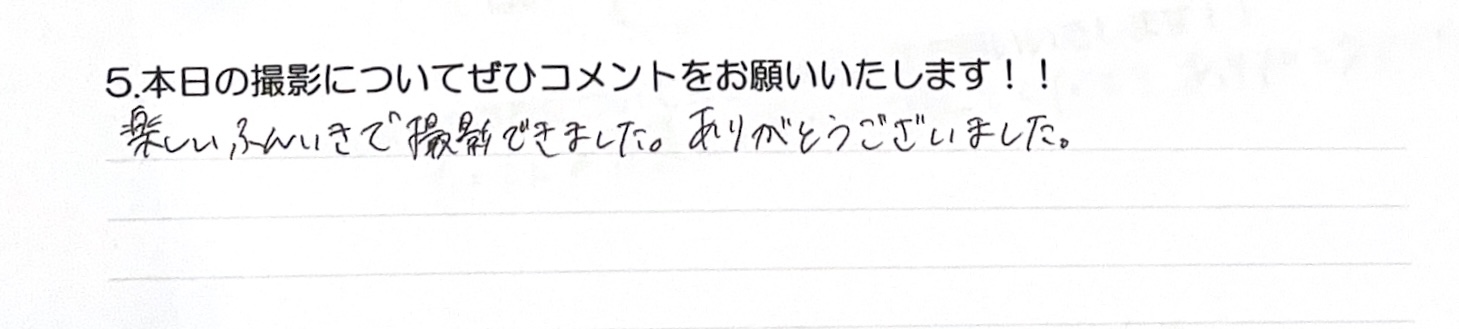 5.本日の撮影についてぜひコメントをお願いいたします！！
楽しいふんいきで撮影できました。ありがとうございました。